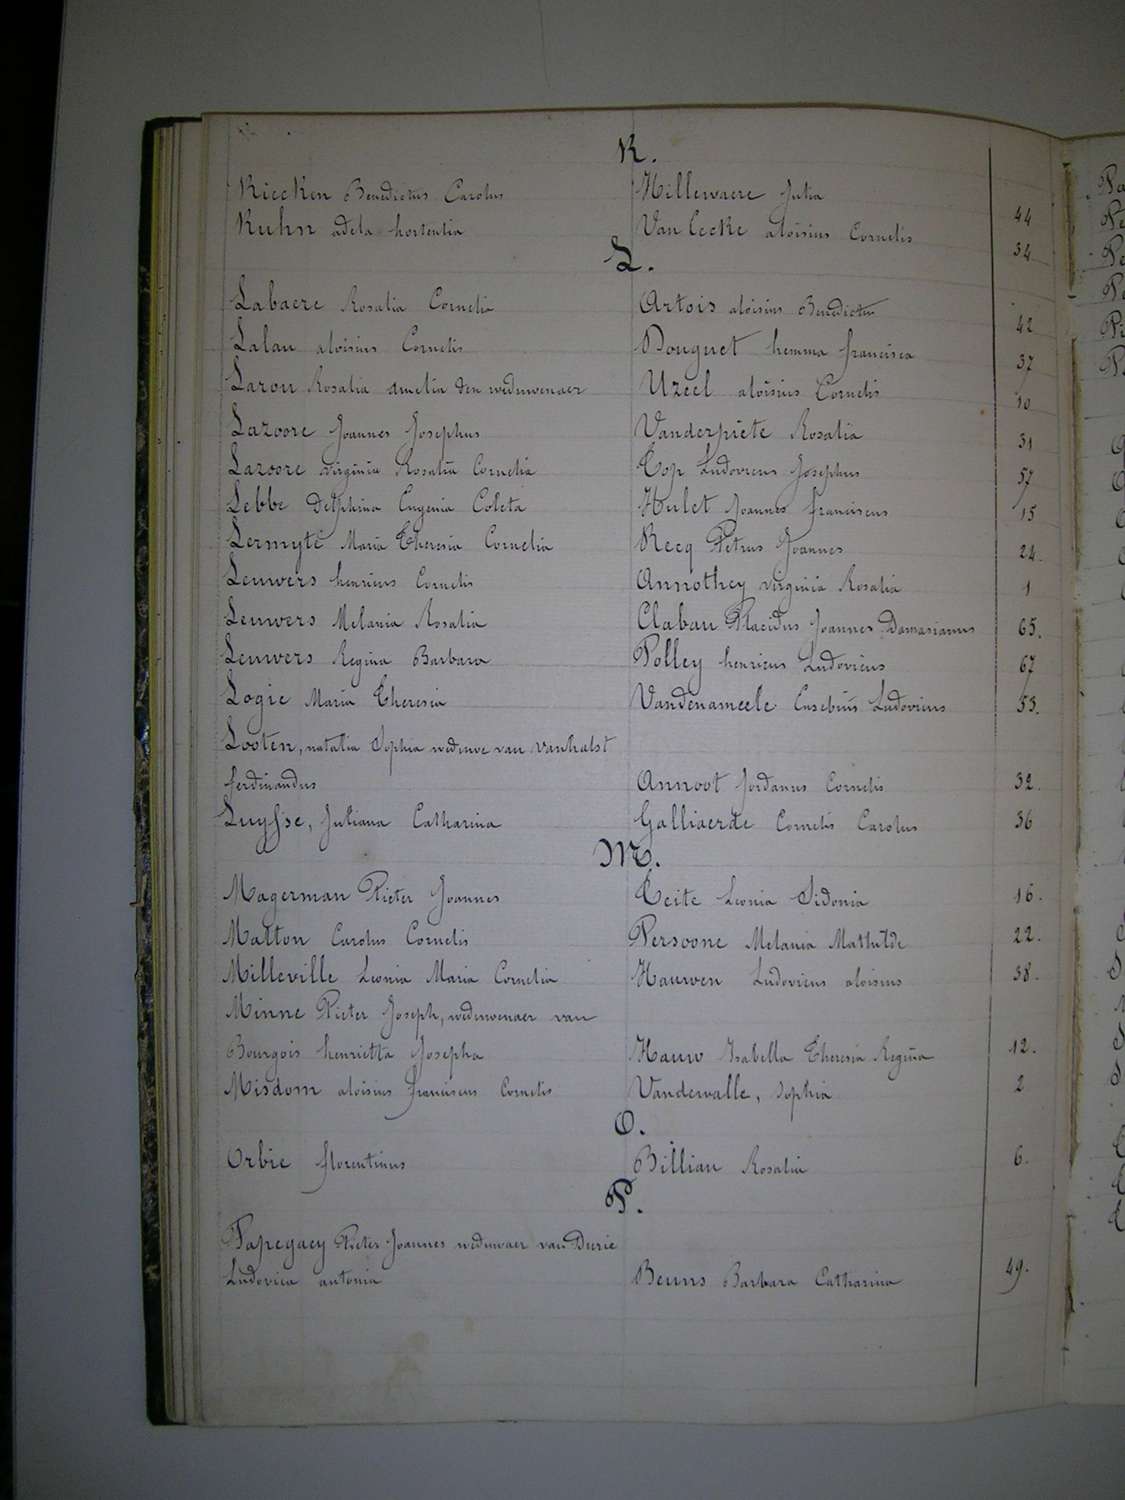 K.
Kiecken Benedictus Carolus Hillewaere Julia 44
Kuhn adela hortentia Van Eecke aloisius Cornelis 34
L.
Labaere Rosalia Cornelia Artois aloisius Benedictus 42
Lalau aloisius Cornelis Douguet hemma francisca 37
Larou Rosalia amelia den weduwenaer Uzeel aloïsius Cornelis 10
Lazoore Joannes Josephus Vanderpiete Rosalia 31
Lazoore virginia Rosalia Cornelia Top Ludovicus Josephus 57
Lebbe Delphina Eugenia Coleta Hulet Joannes franciscus 15
Lermyte Maria Theresia Cornelia Recq Petrus Joannes 24.
Leuwers henricus Cornelis Annothey virginia Rosalia 1
Leuwers Melania Rosalia Clabau Placidus Joannes Damasianus 65.
Leuwers Regina Barbara Polley henricus Ludovicus 67
Logie Maria Theresia Vandenameele Eusebius Ludovicus 53.
Looten, natalia Sophia weduwe van vanhalst
ferdinandus Annoot Jordanus Cornelis 32.
Luysse, Juliana Catharina Galliaerde Cornelis Carolus 36
M.
Magerman Pieter Joannes Teite Leonia Sidonia 16.
Matton Carolus Cornelis Persoone Melania Mathilde 22.
Milleville Leonia Maria Cornelia Hauwen Ludovicus aloisius 38.
Minne Pieter Joseph, weduwenaer van
Bourgois henrietta Josepha Hauw Isabella Theresia Regina 12.
Misdom aloisius franciscus Cornelis Vandewalle, Sophia 2
O.
Orbie florentinus Billiau Rosalia 6.
P.
Papegaey Pieter Joannes weduwaer van Durie
Ludovica antonia Beuns Barbara Catharina 49.